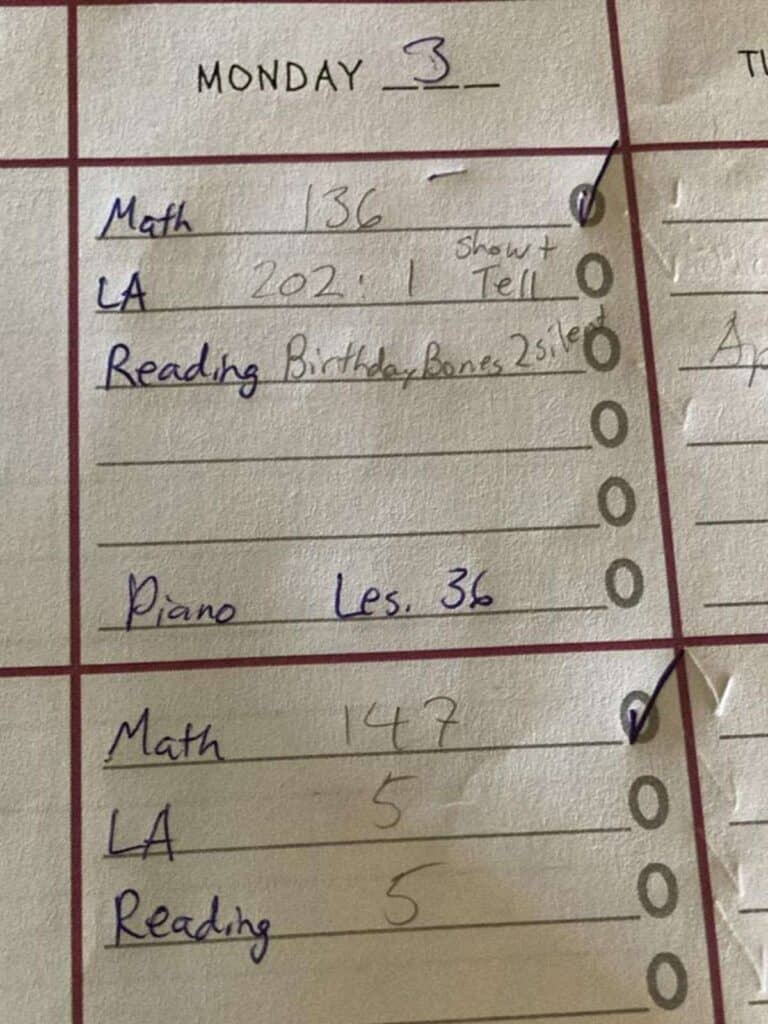 MONDAY 3
Math 136
LA 202: 1 Show + Tell
Reading Birthday Bones 2 silent
Piano Les. 36
Math 147
LA 5
Reading 5